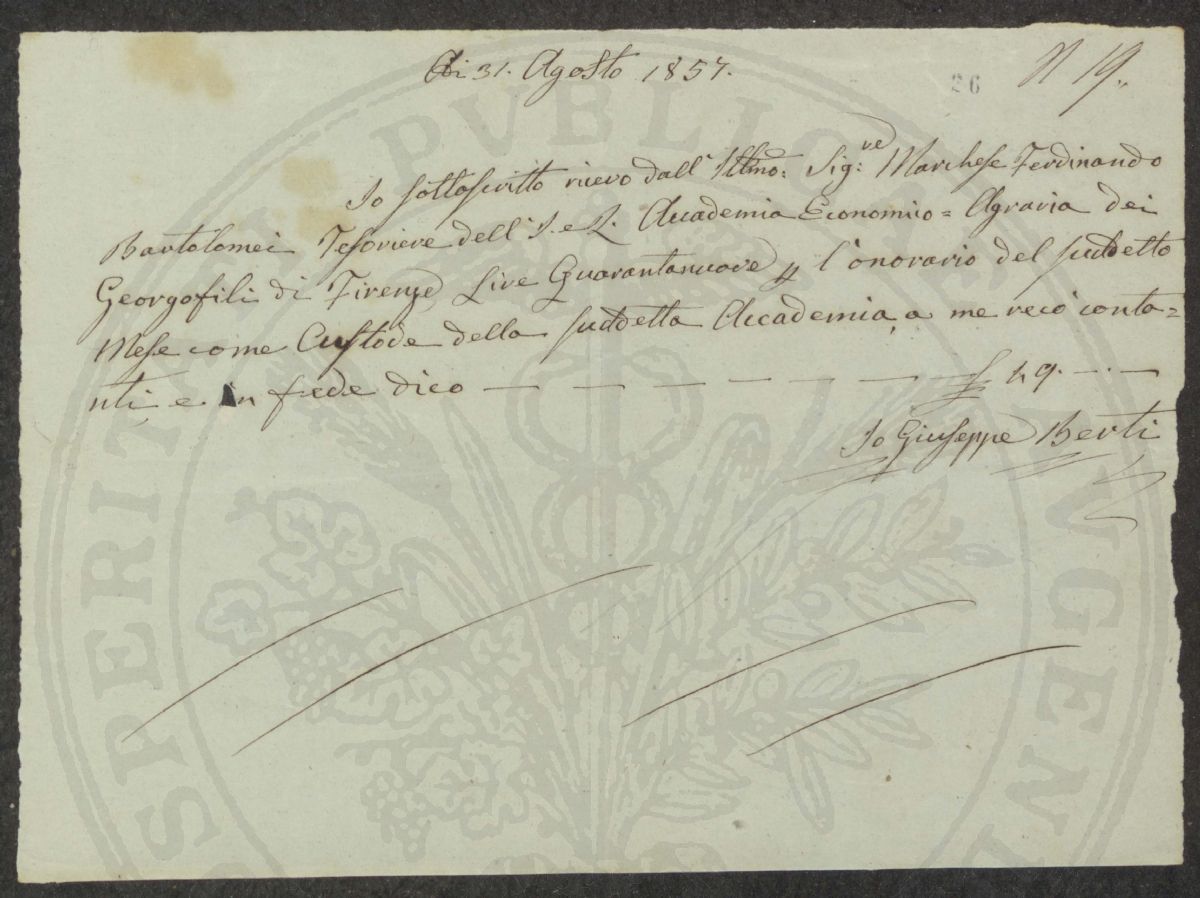 Adi 31. Agosto 1857.
26
N 19.,
Io sottoscritto ricevo dall' Illmo: Sig:re Marchese Ferdinando
Bartolomei Tesoriere dell' I. e R. Accademia Economico = Agraria dei
Georgofili di Firenze Lire Quarantanuove p l'onorario del suddetto
Mese come Custode della suddetta Accademia, a me recò conta=
nti, e in fede dico — — — — — — — £ 49. — . —
Io Giuseppe Berti
PROSPERITATI PVBLICAE AVGENDAE